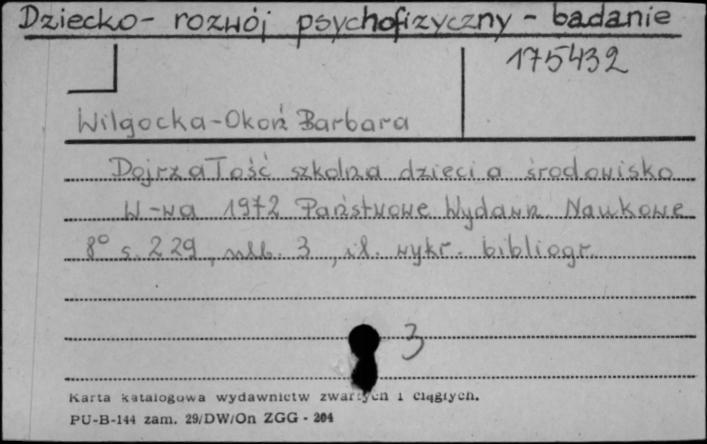 Dziecko - rozwój psychofizyczny - badanie
175432
Wilgocka-Okoń Barbara
Dojrzałość szkolna dzieci a środowisko
W-wa 1972 Państwowe Wydawn. Naukowe
8° s. 229, nlb. 3, il. wykr. bibliogr.
3
Karta katalogowa wydawnictw zwartych i ciągłych.
PU-B-144 zam. 29/DW/On ZGG - 204